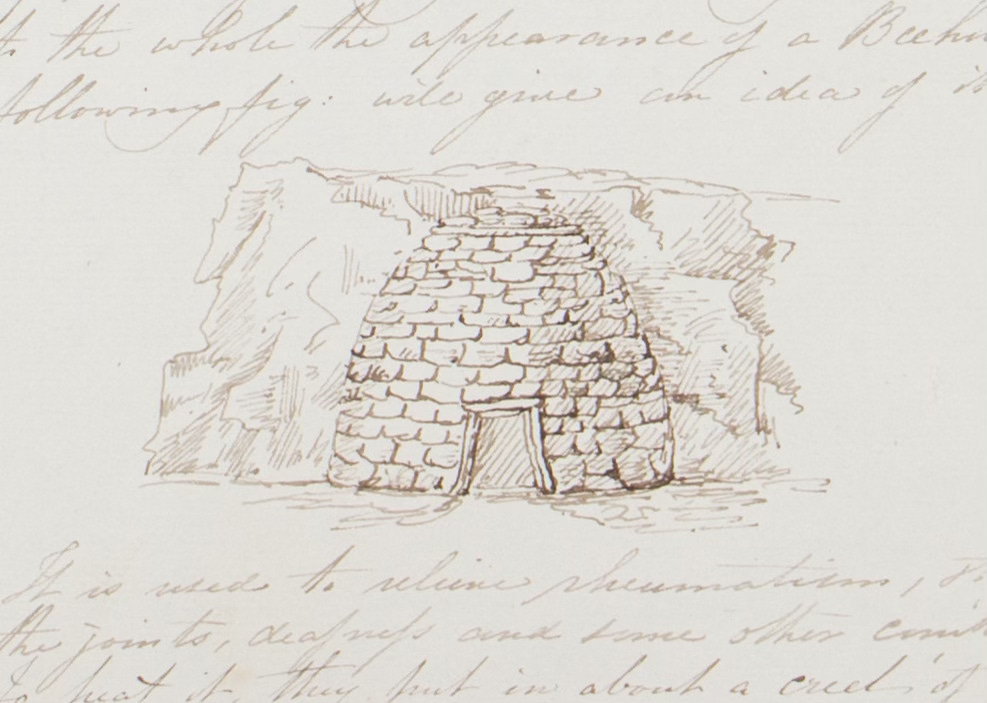 the whole the appearance of a Beehi
following fig: will give an idea of
It is used to relieve rheumatism,
the joints, deafness and some other com
to heat it, they put in about a creel of